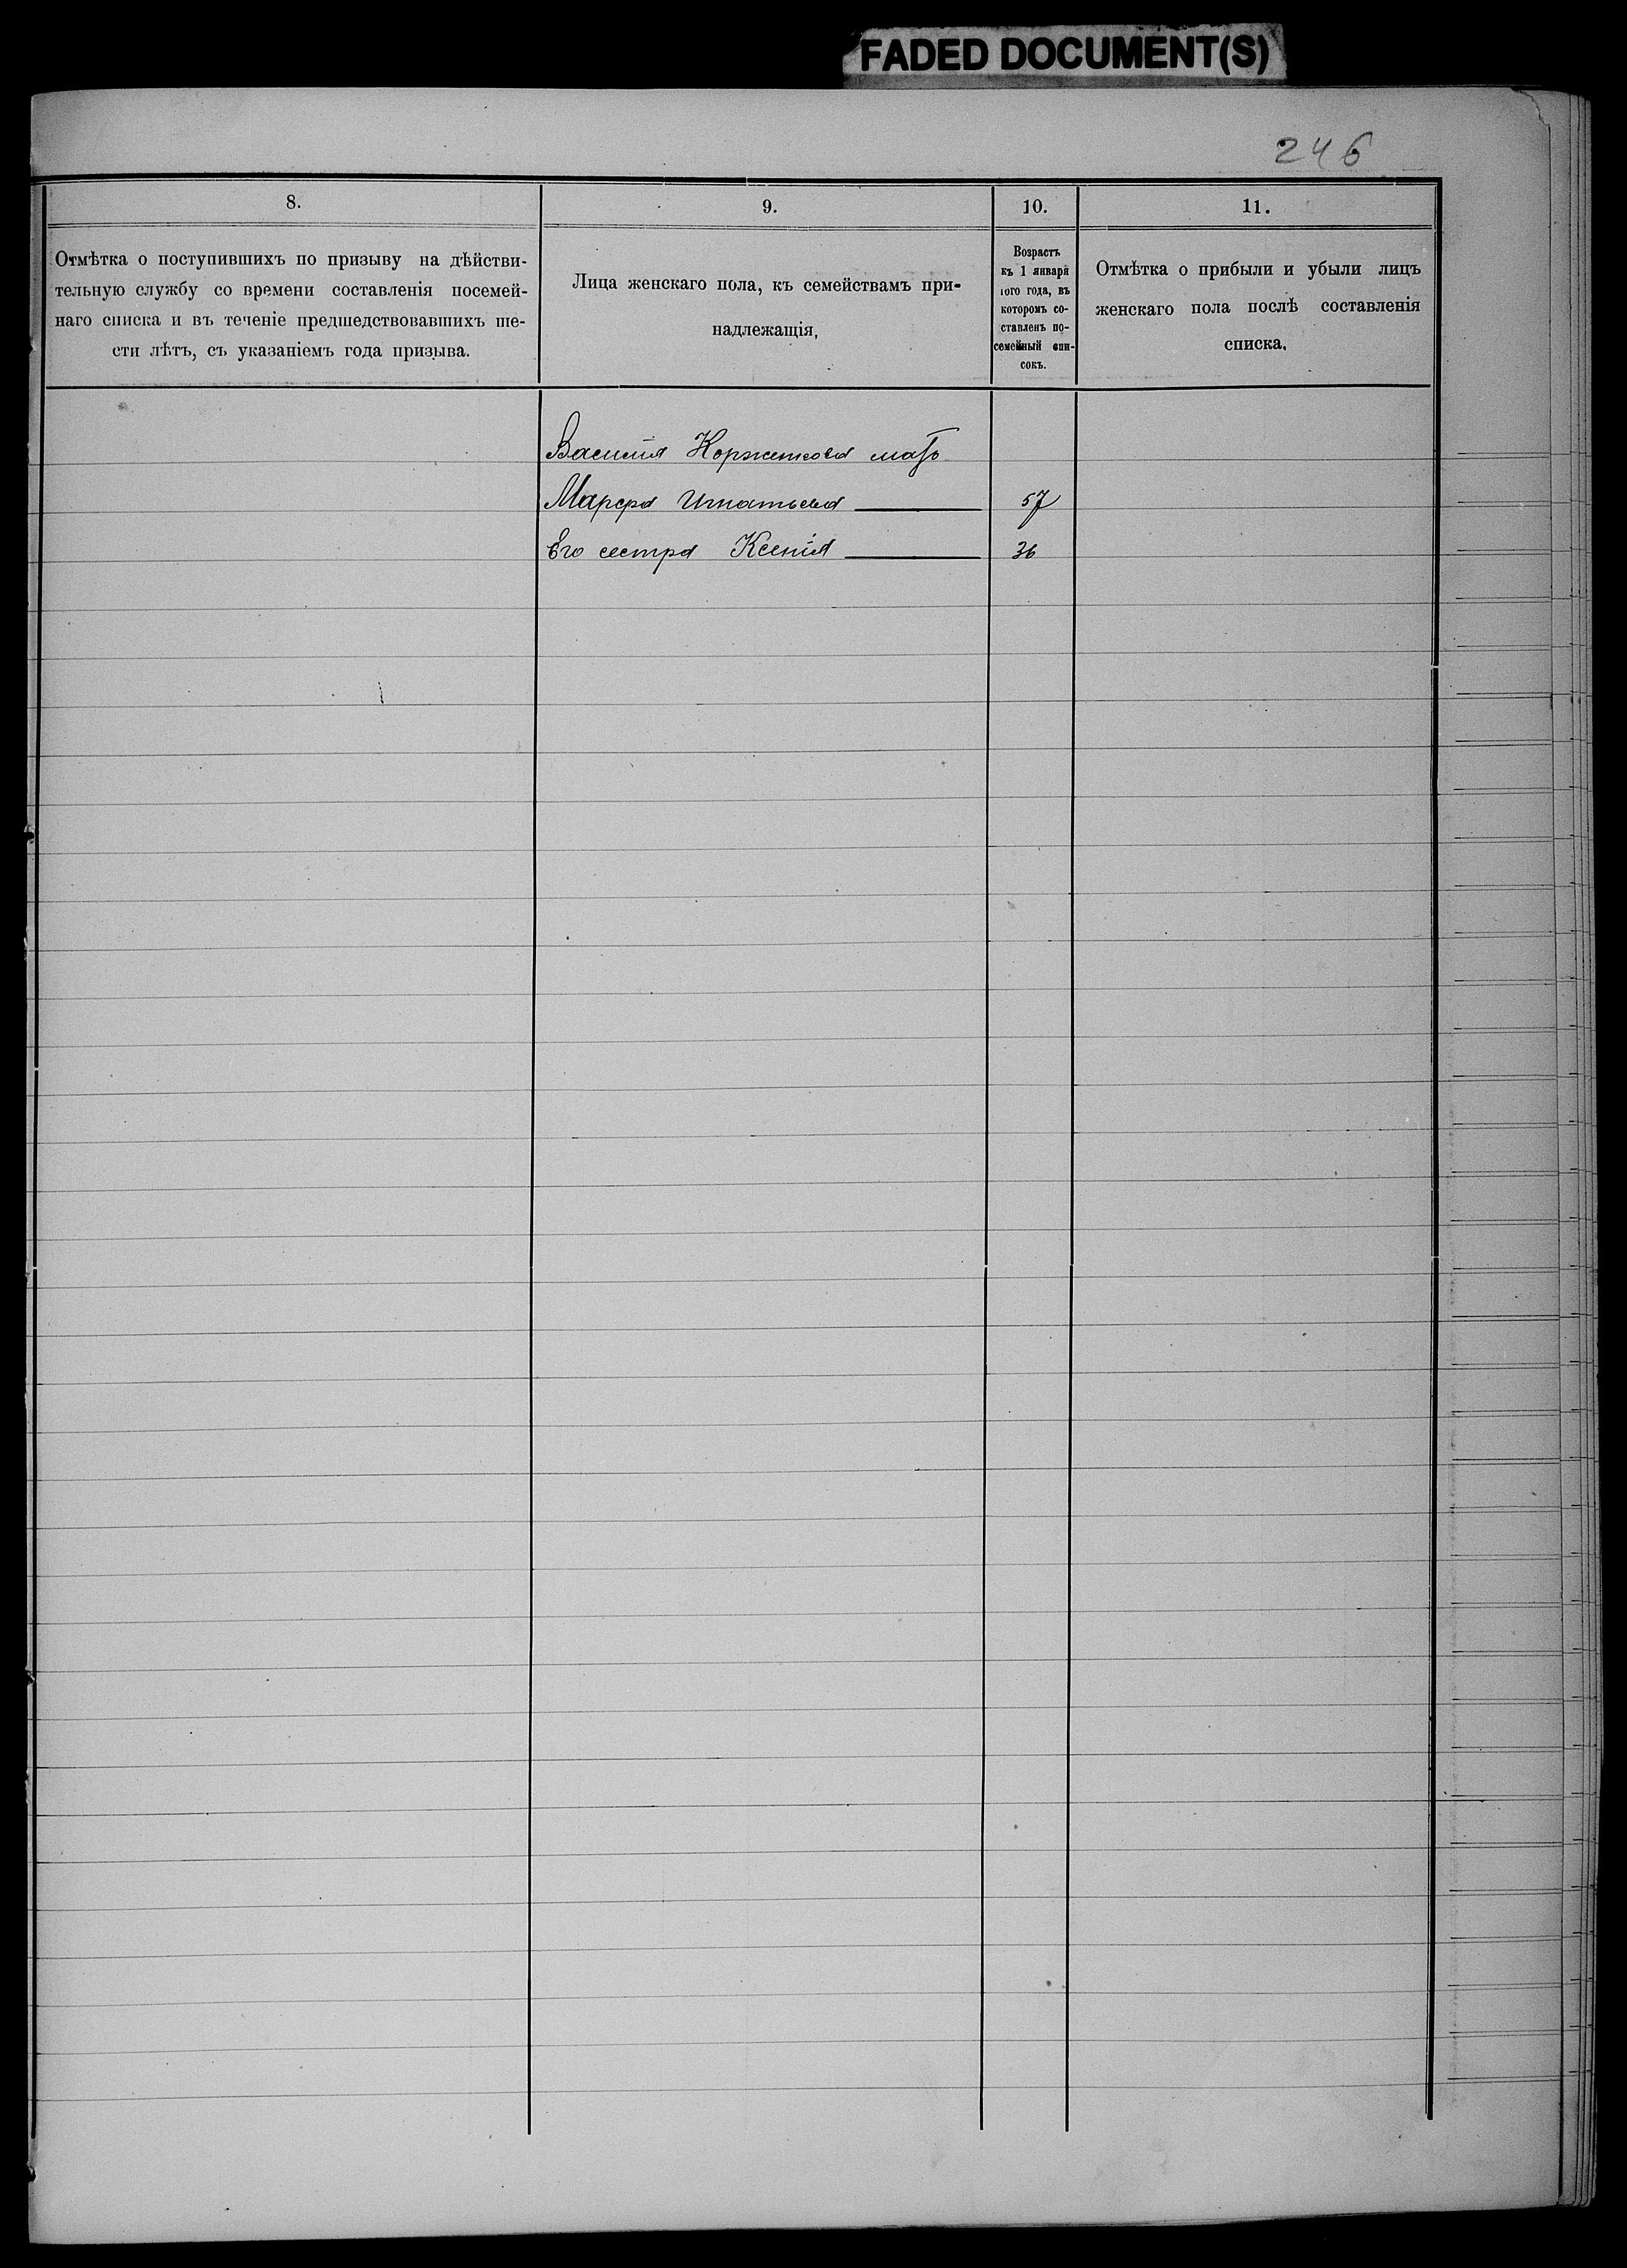 FADED DOCUMENT(S)
246
8.
9.
10.
11.
Отмѣтка о поступившихъ по призыву на дѣйстви-
тельную службу со времени составленія посемей-
наго списка и въ теченіе предшедствовавшихъ ше-
сти лѣтъ, съ указаніемъ года призыва.
Лица женскаго пола, къ семействамъ при-
надлежащія,
Возрастъ
къ 1 января
того года, въ
которомъ со-
ставленъ по-
семейный спи-
сокъ.
Отмѣтка о прибыли и убыли лицъ
женскаго пола послѣ составленія
списка.
Василія Корженкова мать
Марфа Игнатьева 57
Его сестра Ксенія 36